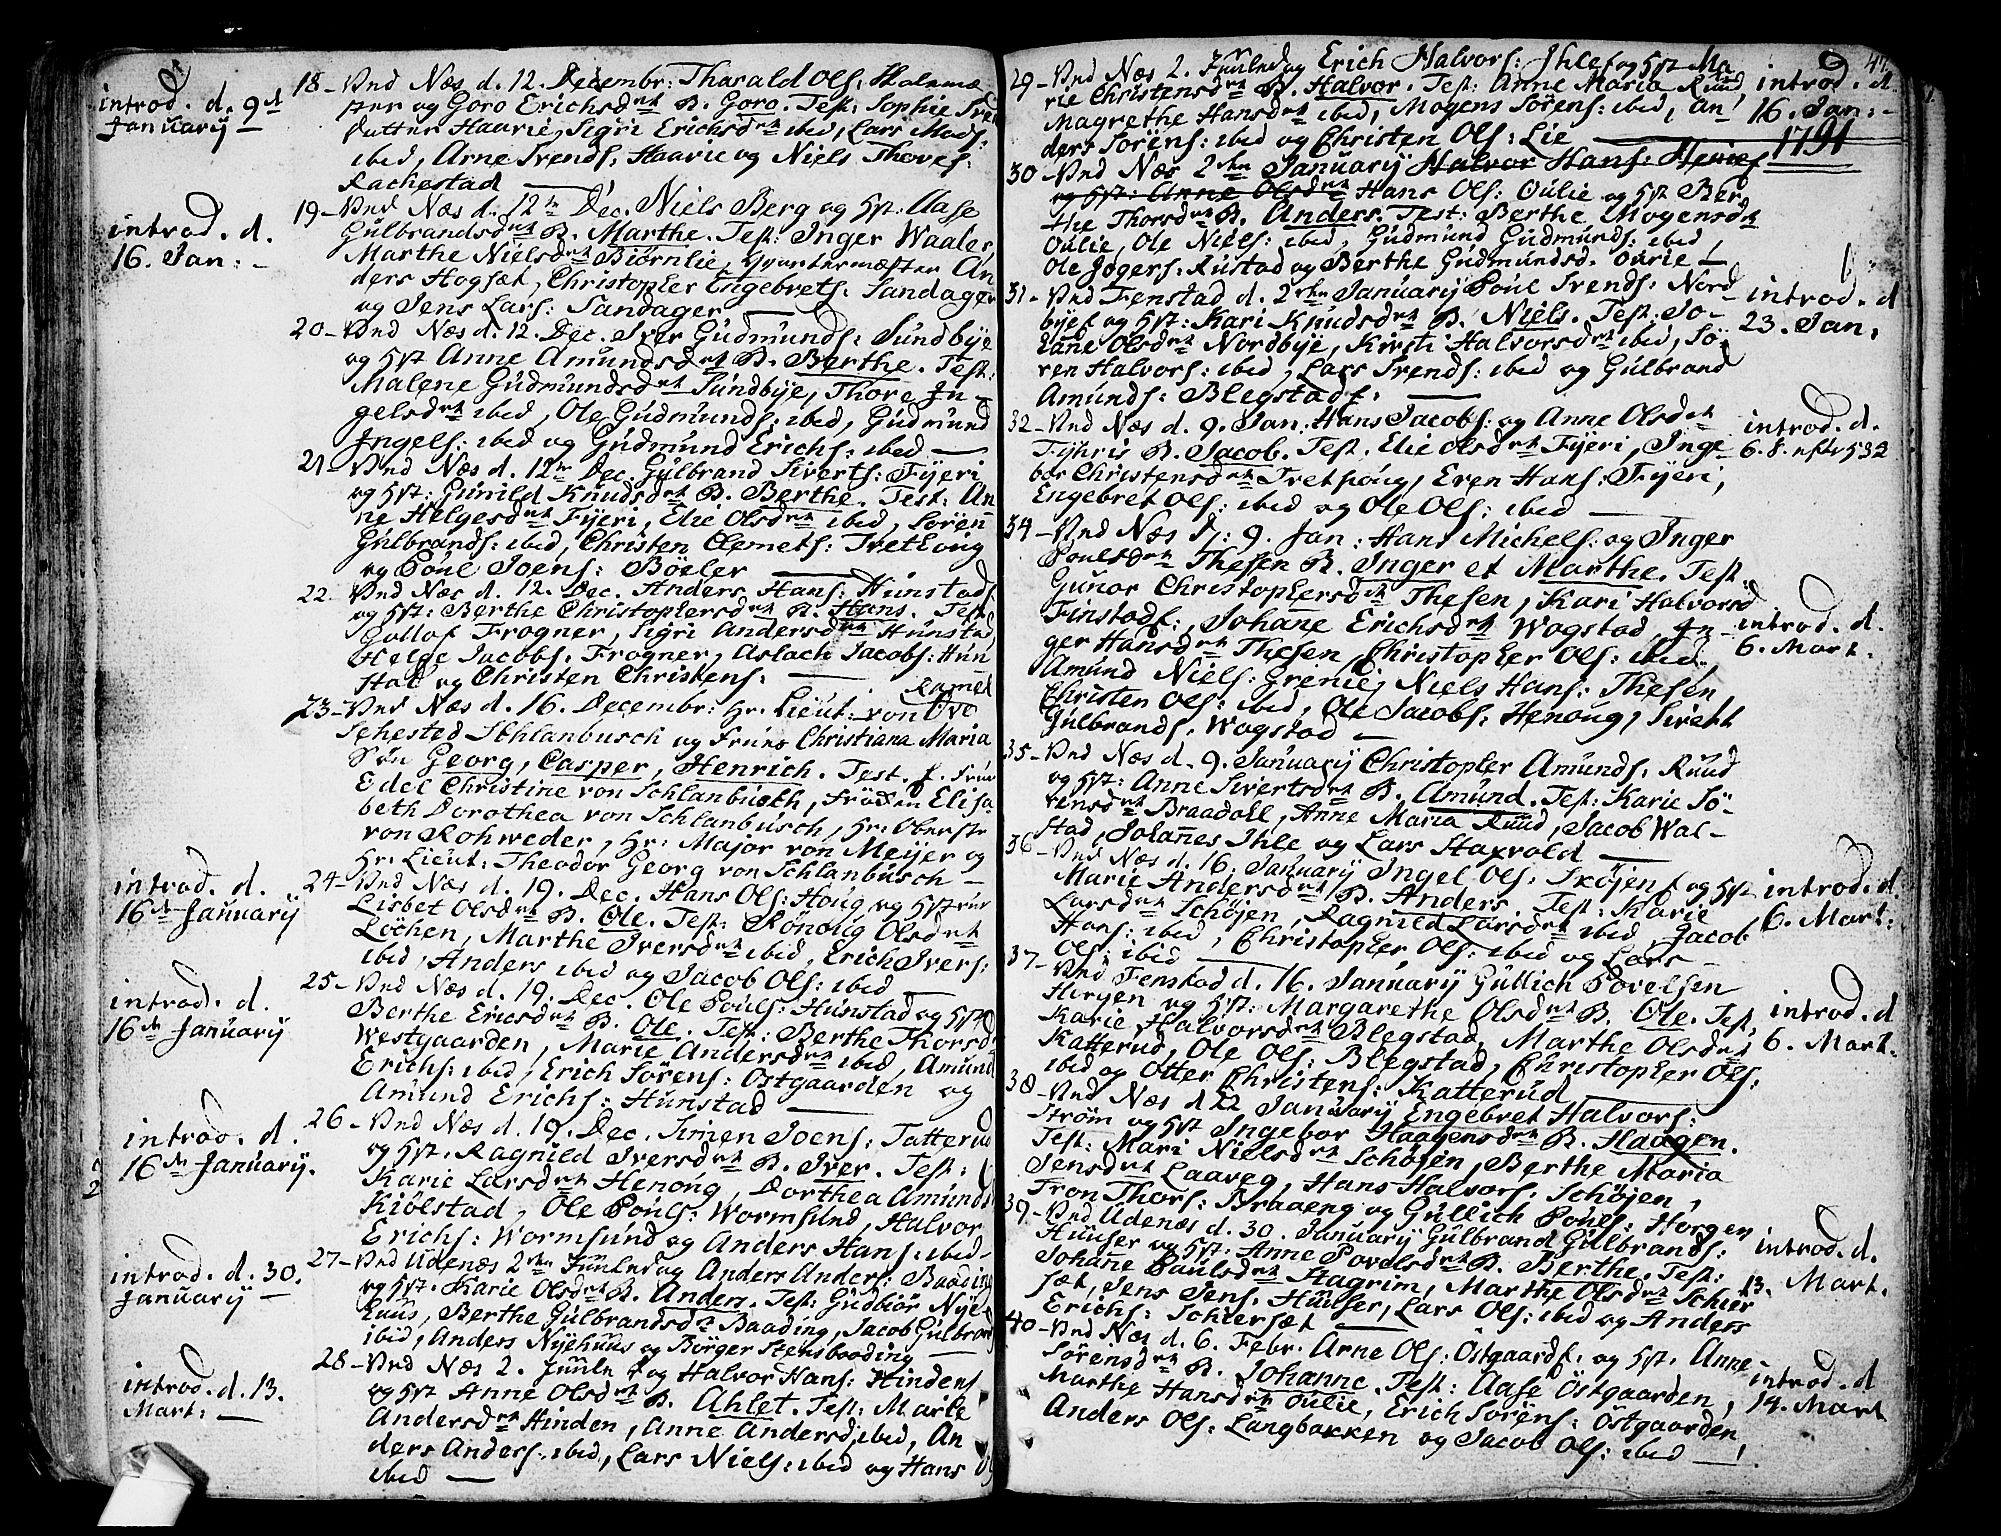 introd. d. 9de
Januarij
18 - Und Næs d. 12. Decembr: Tharald Ols: Holsmæ
ster og Goro Erichsdtr B. Goro. Test: Sophie
datter Haarie, Sigri Erichsdtr ibid, Lars Mads:
ibid, Arne Svends: Haarie og Niels Thoves:
Rachestad
introd. d.
16. Jan:
19 - Und Næs d. 12te Dec. Niels Berg og Hst: Aase
Gulbrandsdtr B. Marthe. Test: Inger Waaler,
Marthe Nielsdtr Biörnlie, Qvartermester An
ders Hogset, Christopher Engebrets: Sandager
og Jens Lars: Sandager
20 - Und Næs d. 12. Dec. Iver Gudmunds: Sundbye
og Hst Anne Amundsdtr B. Berthe. Test:
Malene Gudmundsdtr Sundbye, Thore In-
gelsdtr ibid, Ole Gudmunds: ibid, Gudmund
Ingels: ibid og Gudmund Erichs: ibid
21 - Und Næs d. 12te Dec. Gulbrand Siverts: Fyeri
og Hst: Gunild Knudsdtr B. Berthe. Test: An
ne Helgesdtr Fyeri, Elie Olsdtr ibid, Sören
Gulbrands: ibid, Christen Clemets: Tvethoug
og Poul Joens: Böeler
22 - Und Næs d. 12. Dec. Anders Hans: Hunstads
og Hst: Berthe Christophersdtr B. Hans. Test
Gullof Frogner, Sigri Andersdtr Hunstad,
Helge Jacobs: Frogner, Aslach Jacobs: Hun
stad og Christen Christens:
Ramel
23 - Und Næs d. 16. Decembr: Hr. Lieut: von Ove
Sehested Schlanbusch og Frues Christiana Maria
Sön Georg, Casper, Henrich. Test. f. Frue
Edel Christine von Schlanbusch, Fröken Elisa
beth Dorothea von Schlanbusch, Hr: Oberste
von Rohweder, Hr: Major von Meijer og
Hr: Lieut: Theodor Georg von Schlanbusch
introd. d.
16de Januarij
24 - Und Næs d. 19. Dec. Hans Ols: Houg og Hstrue
Lisbet Olsdtr B. Ole. Test: Rönoug Olsdtr
Löchen, Marthe Iversdtr ibid, Erich Ivers:
ibid, Anders ibid og Jacob Ols: ibid
introd. d.
16de Januarij
25 - Und Næs d. 19. Dec. Ole Pouls: Hunstad og Hst
Berthe Ericsdtr B. Ole. Test: Berthe Thorsd
Westgaarden, Marie Andersdtr ibid, Amund
Erichs: ibid, Erich Sörens: Ostgaarden og
Amund Erichs: Hunstad
introd. d.
16de Januarij.
26 - Und Næs d. 19. Dec. Simen Joens: Tatterud
og Hst. Ragnild Iversdtr B. Iver. Test:
Karie Larsdtr Henoug, Dorthea Amunds
Kiölstad, Ole Pouls: Wormsund, Halvor
Erichs: Wormsund og Anders Hans: ibid
introd. d. 30.
Januarij
27 - Und Udenæs 2den Juuledag Anders Anders: Baading
og Hst. Karie Olsdtr B. Anders. Test: Gudbiör Nye
huus, Berthe Gulbrandsdtr Baading, Jacob Gulbrands
ibid, Anders Nyehuus og Börger Stensbaading
introd. d. 13.
Mart:
28 - Und Næs 2. Juule dag Halvor Hans: Hindens
og Hst Anne Olsdtr B. Ahlet. Test: Marte
Andersdtr Hinden, Anne Andersd. ibid, An
ders Anders: ibid, Lars Niels: ibid og Hans
ibid
29 - Und Næs 2. Juuledag Erich Halvors: Ihle og Hst Ma
rie Christensdtr B. Halvor. Test: Anne Maria Ruud
Magrethe Hansdtr ibid, Mogens Sörens: ibid, An
ders Sörens: ibid og Christen Ols: Lie
introd. d.
16. Jan:
1791
30 - Und Næs 2den Januarij Halvor Hans: Henies
og Hst: Anne Olsdtr Hans Ols: Oulie og Hst Ber
the Thorsdtr B. Anders. Test: Berthe Mogensdtr
Oulie, Ole Niels: ibid, Gudmund Gudmunds: ibid
Ole Jogers. Rustad og Berthe Gudmundsd. Ourie
31 - Und Fenstad d. 2den Januarij Poul Svends: Nord
byef og Hst: Kari Knudsdtr B. Niels. Test: Jo-
hane Olsdtr Nordbye, Kirsti Halvorsdtr ibid, Sö-
ren Halvors: ibid, Lars Svends: ibid og Gulbrand
Amunds: Blegstads:
introd. d
23. Jan:
32 - Und Næs d. 9. Jan. Hans Jacobs: og Anne Olsdtr
Fyhris B. Jacob. Test. Elie Olsdtr Fyeri, Inge-
bor Christensdtr Tvethoug, Even Hans: Fyeri,
Engebret Ols: ibid og Ole Ols: ibid
introd. d.
6. S. efter
34 - Und Næs D: 9. Jan: Hans Michels: og Inger
Poulsdtr Thesen B. Inger et Marthe. Test:
Gunor Christophersdtr Thesen, Kari Halvorsd
Finstads:, Johane Erichsdtr Wogstad, In-
ger Hansdtr Thesen, Christopher Ols: ibid,
Amund Niels: Grenie, Niels Hans: Thesen,
Christen Ols: ibid, Ole Jacobs: Henoug, Sivert
Gulbrands: Wogstad
introd. d.
6. Mart.
35 - Und Næs d. 9. Januarij Christopher Amunds: Ruud
og Hst: Anne Sivertsdtr B. Amund. Test: Karie Sö-
rensdtr Braadoll, Anne Maria Ruud, Jacob Wal-
stad, Johannes Ihle og Lars Haxvold
36 - Und Næs d. 16. Januarij Ingel Ols: Sköjen og Hst
Marie Andersdtr B. Anders. Test: Karie
Larsdtr Schöjen, Ragnild Larsdtr ibid, Jacob
Hans: ibid, Christopher Ols: ibid og Lars
Ols: ibid
introd. d.
6. Mart:
37 - Und Fenstad d. 16. Januarij Gullich Povelsen
Horgen og Hst: Margarethe Olsdtr B. Ole. Test.
Karie Halvorsdtr Blegstad, Marthe Olsdtr
Katterud, Ole Ols: Blegstad, Christopher Ols:
ibid og Otter Christens: Katterud
introd. d
6. Mart.
38 - Und Næs d 22 Januarij Engebret Halvors:
Ström og Hst Ingebor Haagensdtr B. Haagen.
Test: Mari Nielsdtr Schöjen, Berthe Maria
Jensdtr Laaveg, Hans Halvors: Schöjen,
Fron Thors: Braaeng og Gullich Pouls: Horgen
39 - Und Udenæs d. 30. Januarij Gulbrand Gulbrands:
Huuser og Hst: Anne Povelsdtr B. Berthe. Test:
Johane Paulsdtr Hagrim, Marthe Olsdtr Schier
set, Jens Jens: Huuser, Lars Ols: ibid og Anders
Erichs: Schierset
introd. d.
13. Mart.
40 - Und Næs d. 6. Febr. Arne Ols: Östgaards. og Hst. Anne
Sörensdtr B. Johanne. Test: Aase Östgaarden,
Marthe Hansdtr Oulie, Erich Sörens: Östgaarden
Anders Ols. Langbakken og Jacob Ols: ibid
introd. d
14. Mart